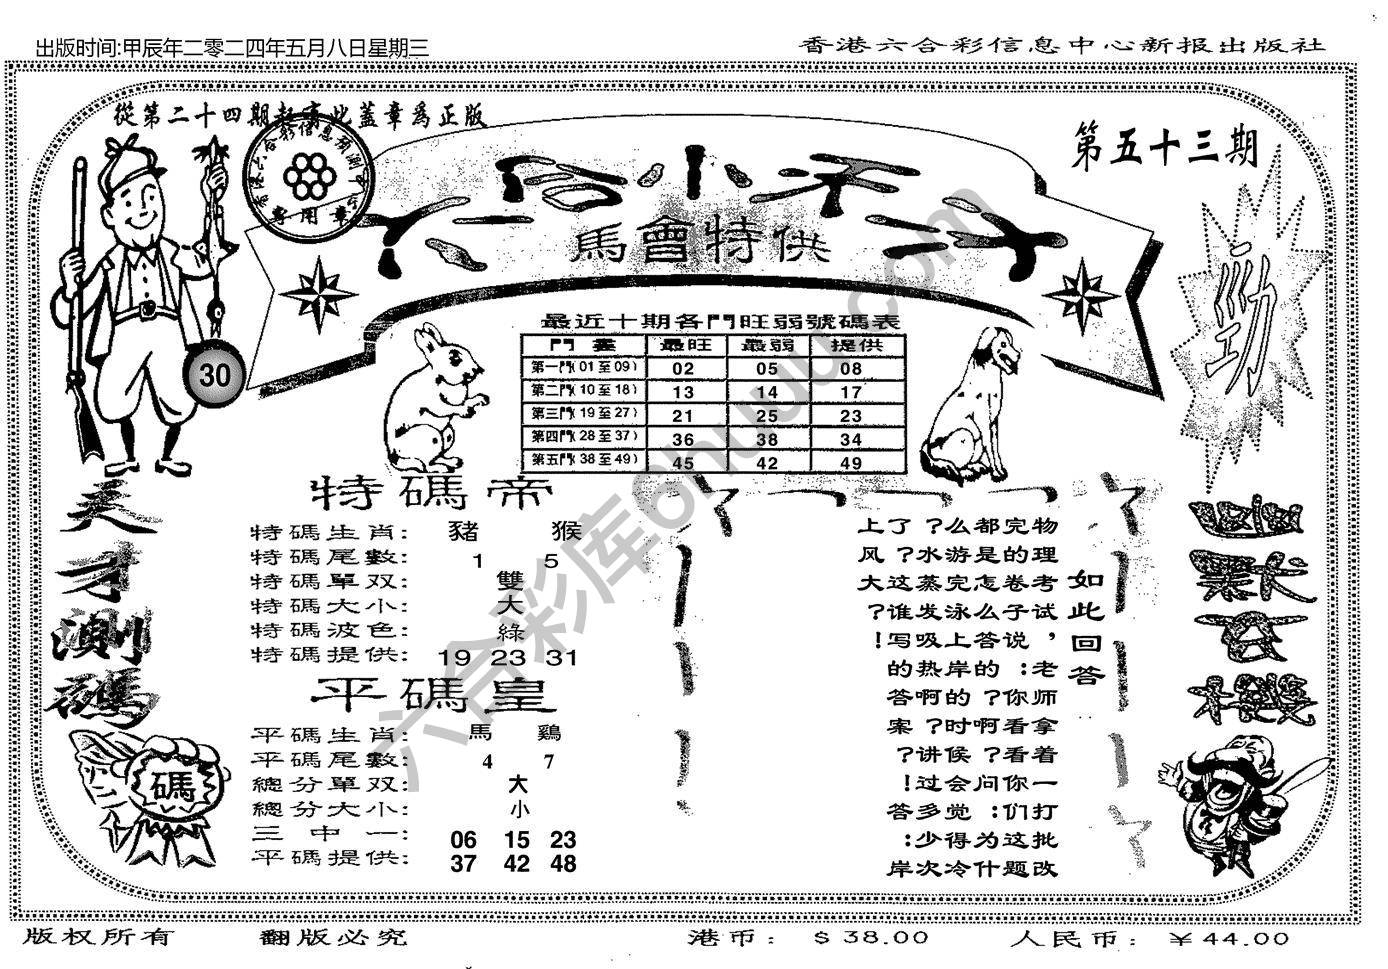 出版时间:甲辰年二零二四年五月八日星期三
香港六合彩信息中心新报出版社
從第二十四期起寄此蓋章爲正版
第五十三期
馬會特供
30
勁
最近十期各門旺弱號碼表
最旺 最弱 提供
第一門(01至09) 02 05 08
第二門(10至18) 13 14 17
第三門(19至27) 21 25 23
第四門(28至37) 36 38 34
第五門(38至49) 45 42 49
天才測碼
碼
特碼帝
特碼生肖: 豬 猴
特碼尾數: 1 5
特碼單双: 雙
特碼大小: 大
特碼波色: 綠
特碼提供: 19 23 31
平碼皇
平碼生肖: 馬 鷄
平碼尾數: 4 7
總分單双: 大
總分大小: 小
三中一: 06 15 23
平碼提供: 37 42 48
如此回答
物理考试，老师拿着一打批改
完的卷子说：你看看你们这题
都是怎么答的？啊？问：为什
么游完泳上岸的时候会觉得冷
？水蒸发吸热啊！讲过多少次
了？这谁写的答案？！答：岸
上风大？
六合彩库6huu.com
版权所有
翻版必究
港币：$38.00
人民币：￥44.00